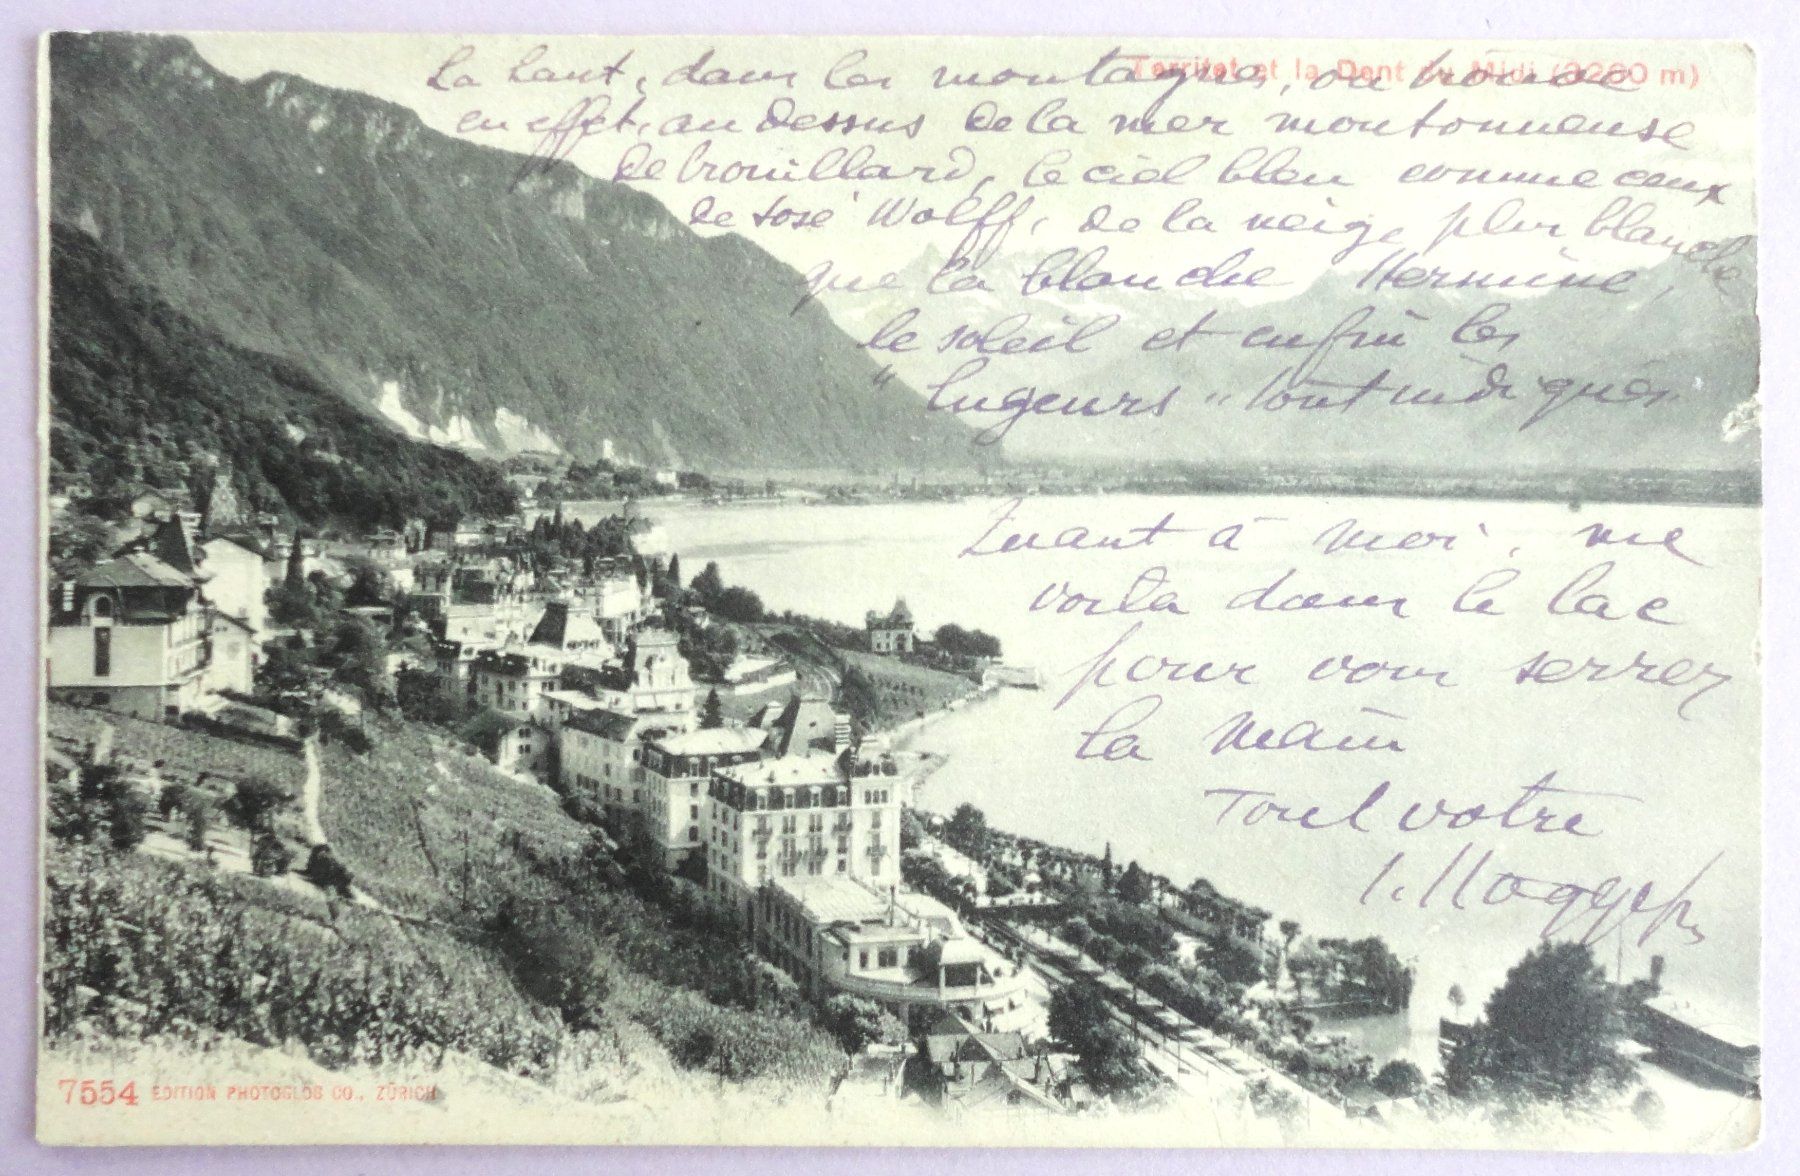 Là haut, dans les montagnes, on trouve
en effet, au dessus de la mer moutonneuse
de brouillard, le ciel bleu comme ceux
de José Wolff, de la neige plus blanche
que la blanche Hermine,
le soleil et enfin les
"lugeurs" tout indiqués.
Quant à moi, me
voila dans le lac
pour vous serrer
la main
Tout votre
Territet et la Dent du Midi (3260 m)
7554 EDITION PHOTOGLOB CO., ZÜRICH